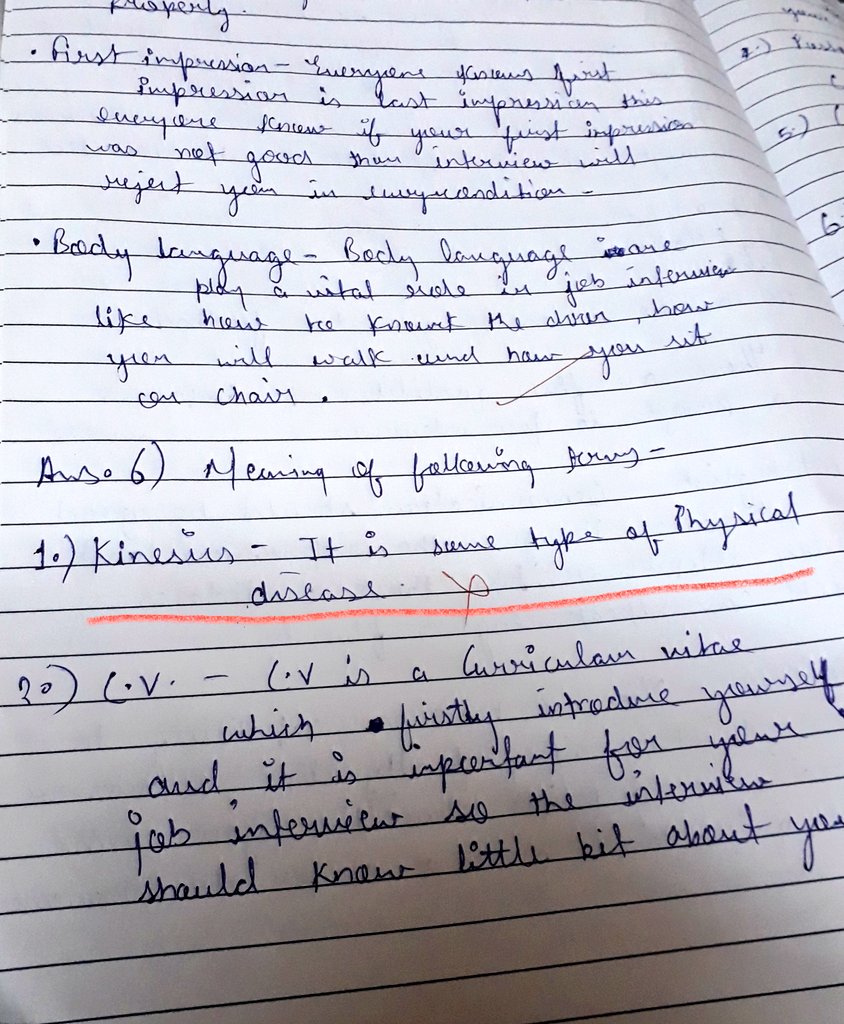 Properly.
• First impression - Everyone knows first
impression is last impression this
everyone know if your first impression
was not good then interview will
reject you in everycondition -
• Body language - Body language are
play a vital role in job interview
like how to knowt the door, how
you will walk and how you sit
on chair.
Ans. 6) Meaning of following terms -
1.) Kinesics - It is some type of Physical
disease.
2.) C.V. - C.V is a Curriculam vitae
which firstly introduce yourself
and it is important for your
job interview so the interview
should know little bit about you
5.)
6